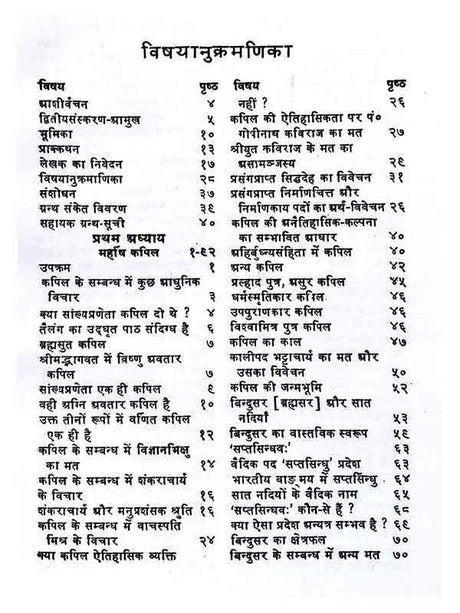 विषयानुक्रमणिका
विषय पृष्ठ
आशीर्वचन ४
द्वितीयसंस्करण-आमुख ५
भूमिका १०
प्राक्कथन १३
लेखक का निवेदन १७
विषयानुक्रमाणिका २८
संशोधन ३७
ग्रन्थ संकेत विवरण ३९
सहायक ग्रन्थ-सूची ४०
प्रथम अध्याय
महर्षि कपिल १-९२
उपक्रम १
कपिल के सम्बन्ध में कुछ आधुनिक
विचार ३
क्या सांख्यप्रणेता कपिल दो थे ? ४
तैलंग का उद्धृत पाठ संदिग्ध है ६
ब्रह्मसुत कपिल ७
श्रीमद्भागवत में विष्णु अवतार
कपिल ७
सांख्यप्रणेता एक ही कपिल ९
वही अग्नि अवतार कपिल है १०
उक्त तीनों रूपों में वर्णित कपिल
एक ही है १२
कपिल के सम्बन्ध में विज्ञानभिक्षु
का मत १४
कपिल के सम्बन्ध में शंकराचार्य
के विचार १६
शंकराचार्य और मनुप्रशंसक श्रुति १६
कपिल के सम्बन्ध में वाचस्पति
मिश्र के विचार २४
क्या कपिल ऐतिहासिक व्यक्ति
विषय पृष्ठ
नहीं ? २६
कपिल की ऐतिहासिकता पर पं०
गोपीनाथ कविराज का मत २७
श्रीयुत कविराज के मत का
असामञ्जस्य २९
प्रसंगप्राप्त सिद्धदेह का विवेचन ३१
प्रसंगप्राप्त निर्माणचित्त और
निर्माणकाय पदों का अर्थ-विवेचन २६
कपिल की अनैतिहासिक-कल्पना
का सम्भावित आधार ४०
अहिर्बुध्न्यसंहिता में कपिल ४०
अन्य कपिल ४२
प्रल्हाद पुत्र, असुर कपिल ४५
धर्मस्मृतिकार कपिल ४६
उपपुराणकार कपिल ४६
विश्वामित्र पुत्र कपिल ४६
कपिल का काल ४७
कालीपद भट्टाचार्य का मत और
उसका विवेचन ५०
कपिल की जन्मभूमि ५२
बिन्दुसर [ब्रह्मसर] और सात
नदियाँ ५३
बिन्दुसर का वास्तविक स्वरूप ५९
'सप्तसिन्धवः' ६३
वैदिक पद 'सप्तसिन्धु' प्रदेश ६३
भारतीय वाङ्मय में सप्तसिन्धु ६४
सात नदियों के वैदिक नाम ६५
'सप्तसिन्धवः' कौन-से हैं ? ६८
क्या ऐसा प्रदेश अन्यत्र सम्भव है ? ६९
बिन्दुसर का क्षेत्रफल ७०
बिन्दुसर के सम्बन्ध में अन्य मत ७०